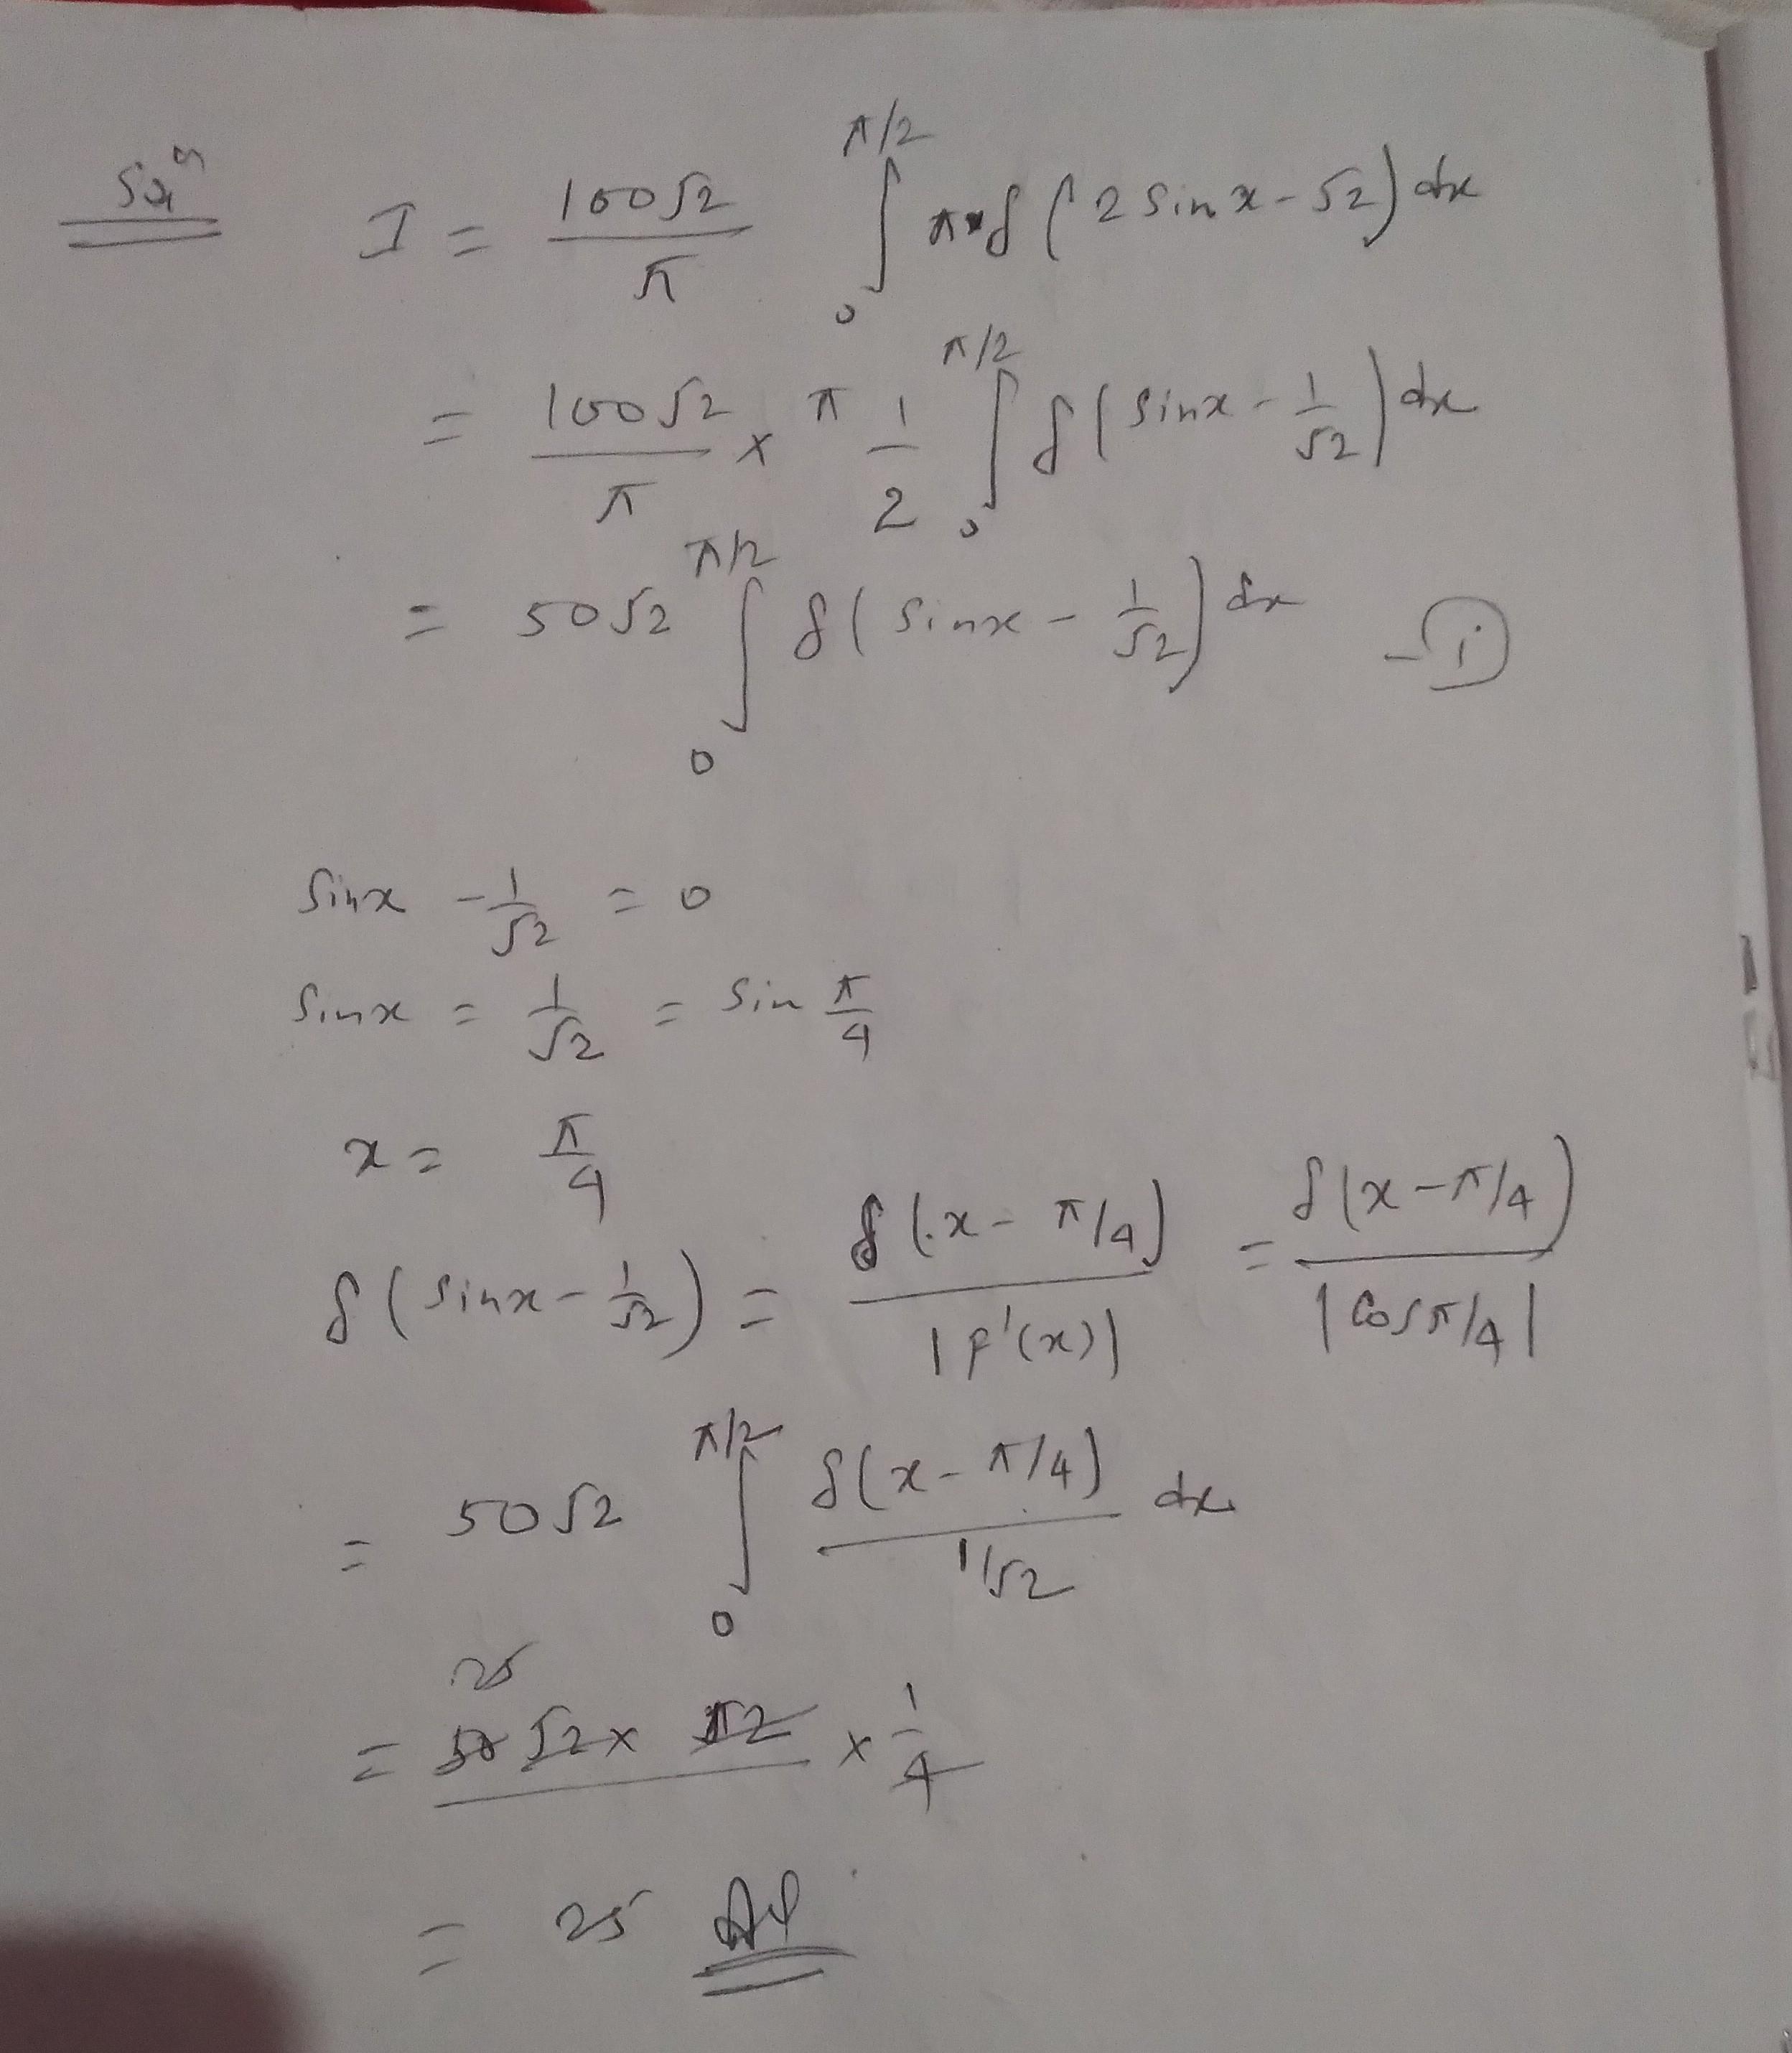 Solⁿ I = 100√2/π ∫₀^π/2 π δ(2 sin x - √2) dx
= 100√2/π × π 1/2 ∫₀^π/2 δ(sin x - 1/√2) dx
= 50√2 ∫₀^π/2 δ(sin x - 1/√2) dx - ⓘ
sin x - 1/√2 = 0
sin x = 1/√2 = sin π/4
x = π/4
δ(sin x - 1/√2) = δ(x - π/4)/|f'(x)| = δ(x - π/4)/|cos π/4|
= 50√2 ∫₀^π/2 δ(x - π/4)/1/√2 dx
25
= 50 √2 × √2 × 1/4
= 25